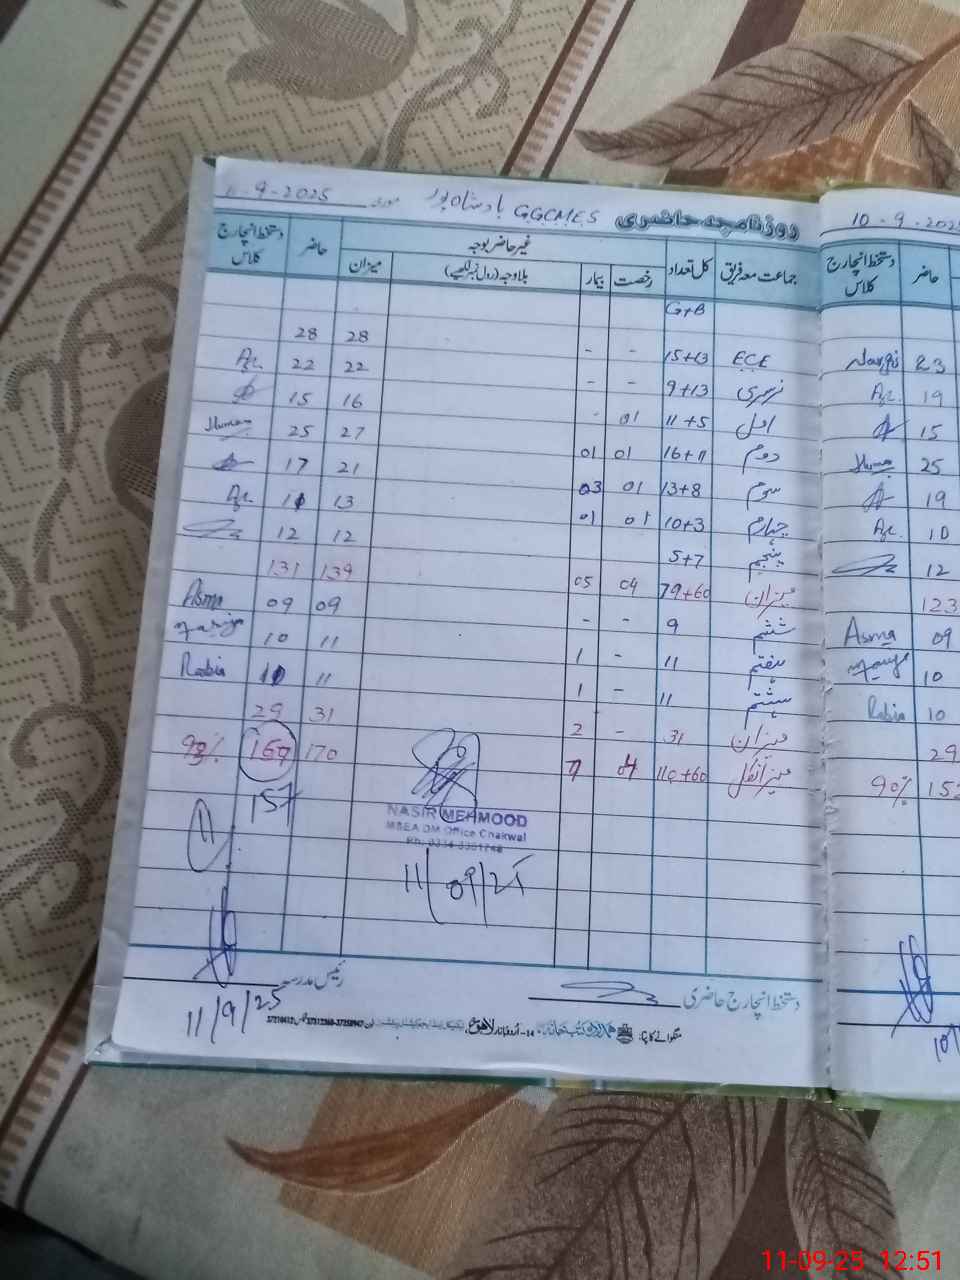 روزنامچہ حاضری GGCMES بادشاہ پور مورخہ 11-9-2025
جماعت معہ فریق کل تعداد غیر حاضر بوجہ حاضر دستخط انچارج کلاس
رخصت بیمار بلاوجہ (رول نمبر لکھیے) میزان
G+B
ECE 15+13 - - 28 28
نرسری 9+13 - - 22 22
اول 11+5 01 - 16 15
دوم 16+11 01 01 27 25 Huma
سوم 13+8 01 03 21 17
چہارم 10+3 01 01 13 11
پنجم 5+7 12 12
میزان 79+60 04 05 139 131
ششم 9 - - 09 09 Asma
ہفتم 11 - 1 11 10
ہشتم 11 - 1 11 10 Rabia
میزان 31 - 2 31 29
میزانکل 110+60 04 7 170 160 93%
157
NASIR MEHMOOD
M&EA DM Office Chakwal
11/09/25
دستخط انچارج حاضری
رئیس مدرسہ
11/9/25
منگوانے کا پتہ: ہمدرد کتب خانہ، 14- اردو بازار لاہور
10-9-2025
دستخط انچارج کلاس حاضر
23 Nargis
19
15
25 Huma
19
10
12
123
09 Asma
10
10 Rabia
29
152 90%
10/
11-09-25 12:51